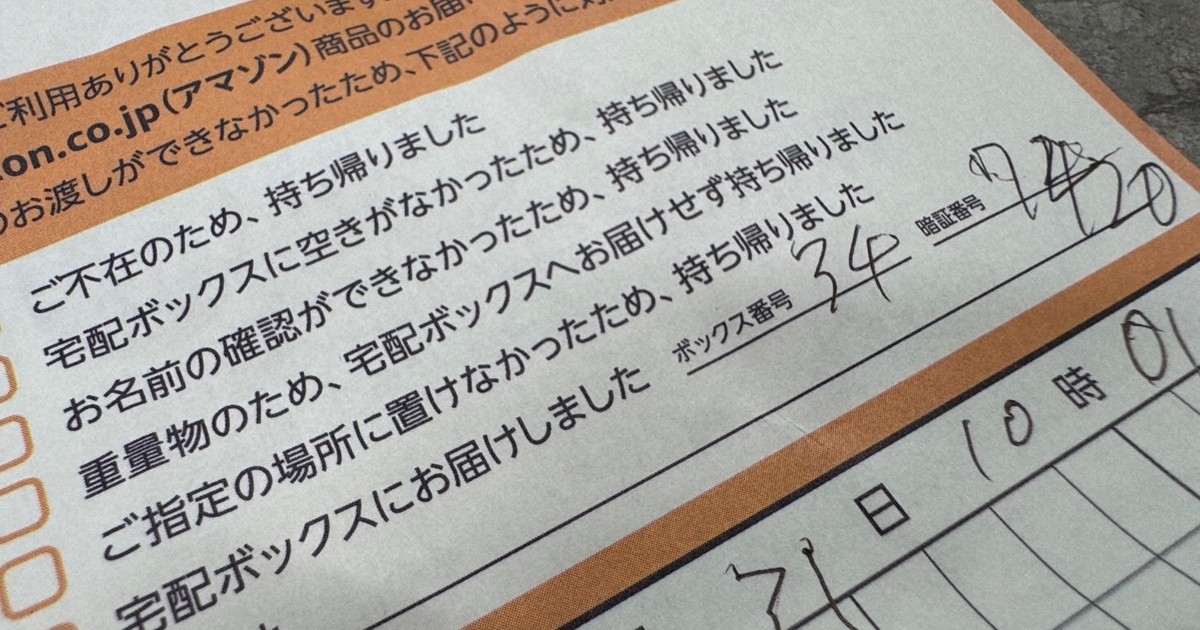 ご利用ありがとうございます
on.co.jp(アマゾン)商品のお届け
のお渡しができなかったため、下記のように対
ご不在のため、持ち帰りました
宅配ボックスに空きがなかったため、持ち帰りました
お名前の確認ができなかったため、持ち帰りました
重量物のため、宅配ボックスへお届けせず持ち帰りました
ご指定の場所に置けなかったため、持ち帰りました
宅配ボックスにお届けしました ボックス番号 34 暗証番号
日 10 時 01